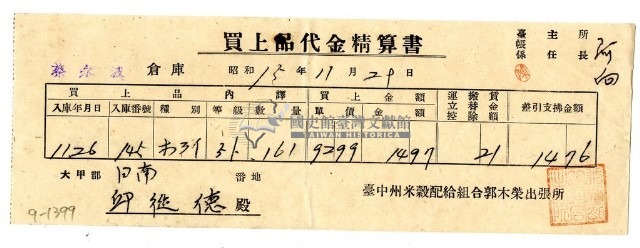 買上品代金精算書
所長
主任
臺帳係
倉庫 昭和 13 年 11 月 29 日
買上品內譯 買上金額 運搬賃立替控除 差引支拂金額
入庫年月日 入庫番號 種別 等級 數量 單價 金額
1126 145 3 161 9299 1497 21 1476
國史館臺灣文獻館
TAIWAN HISTORICA
大甲郡 日南 番地
邱 德 殿
臺中州米穀配給組合郭木榮出張所
9-1399